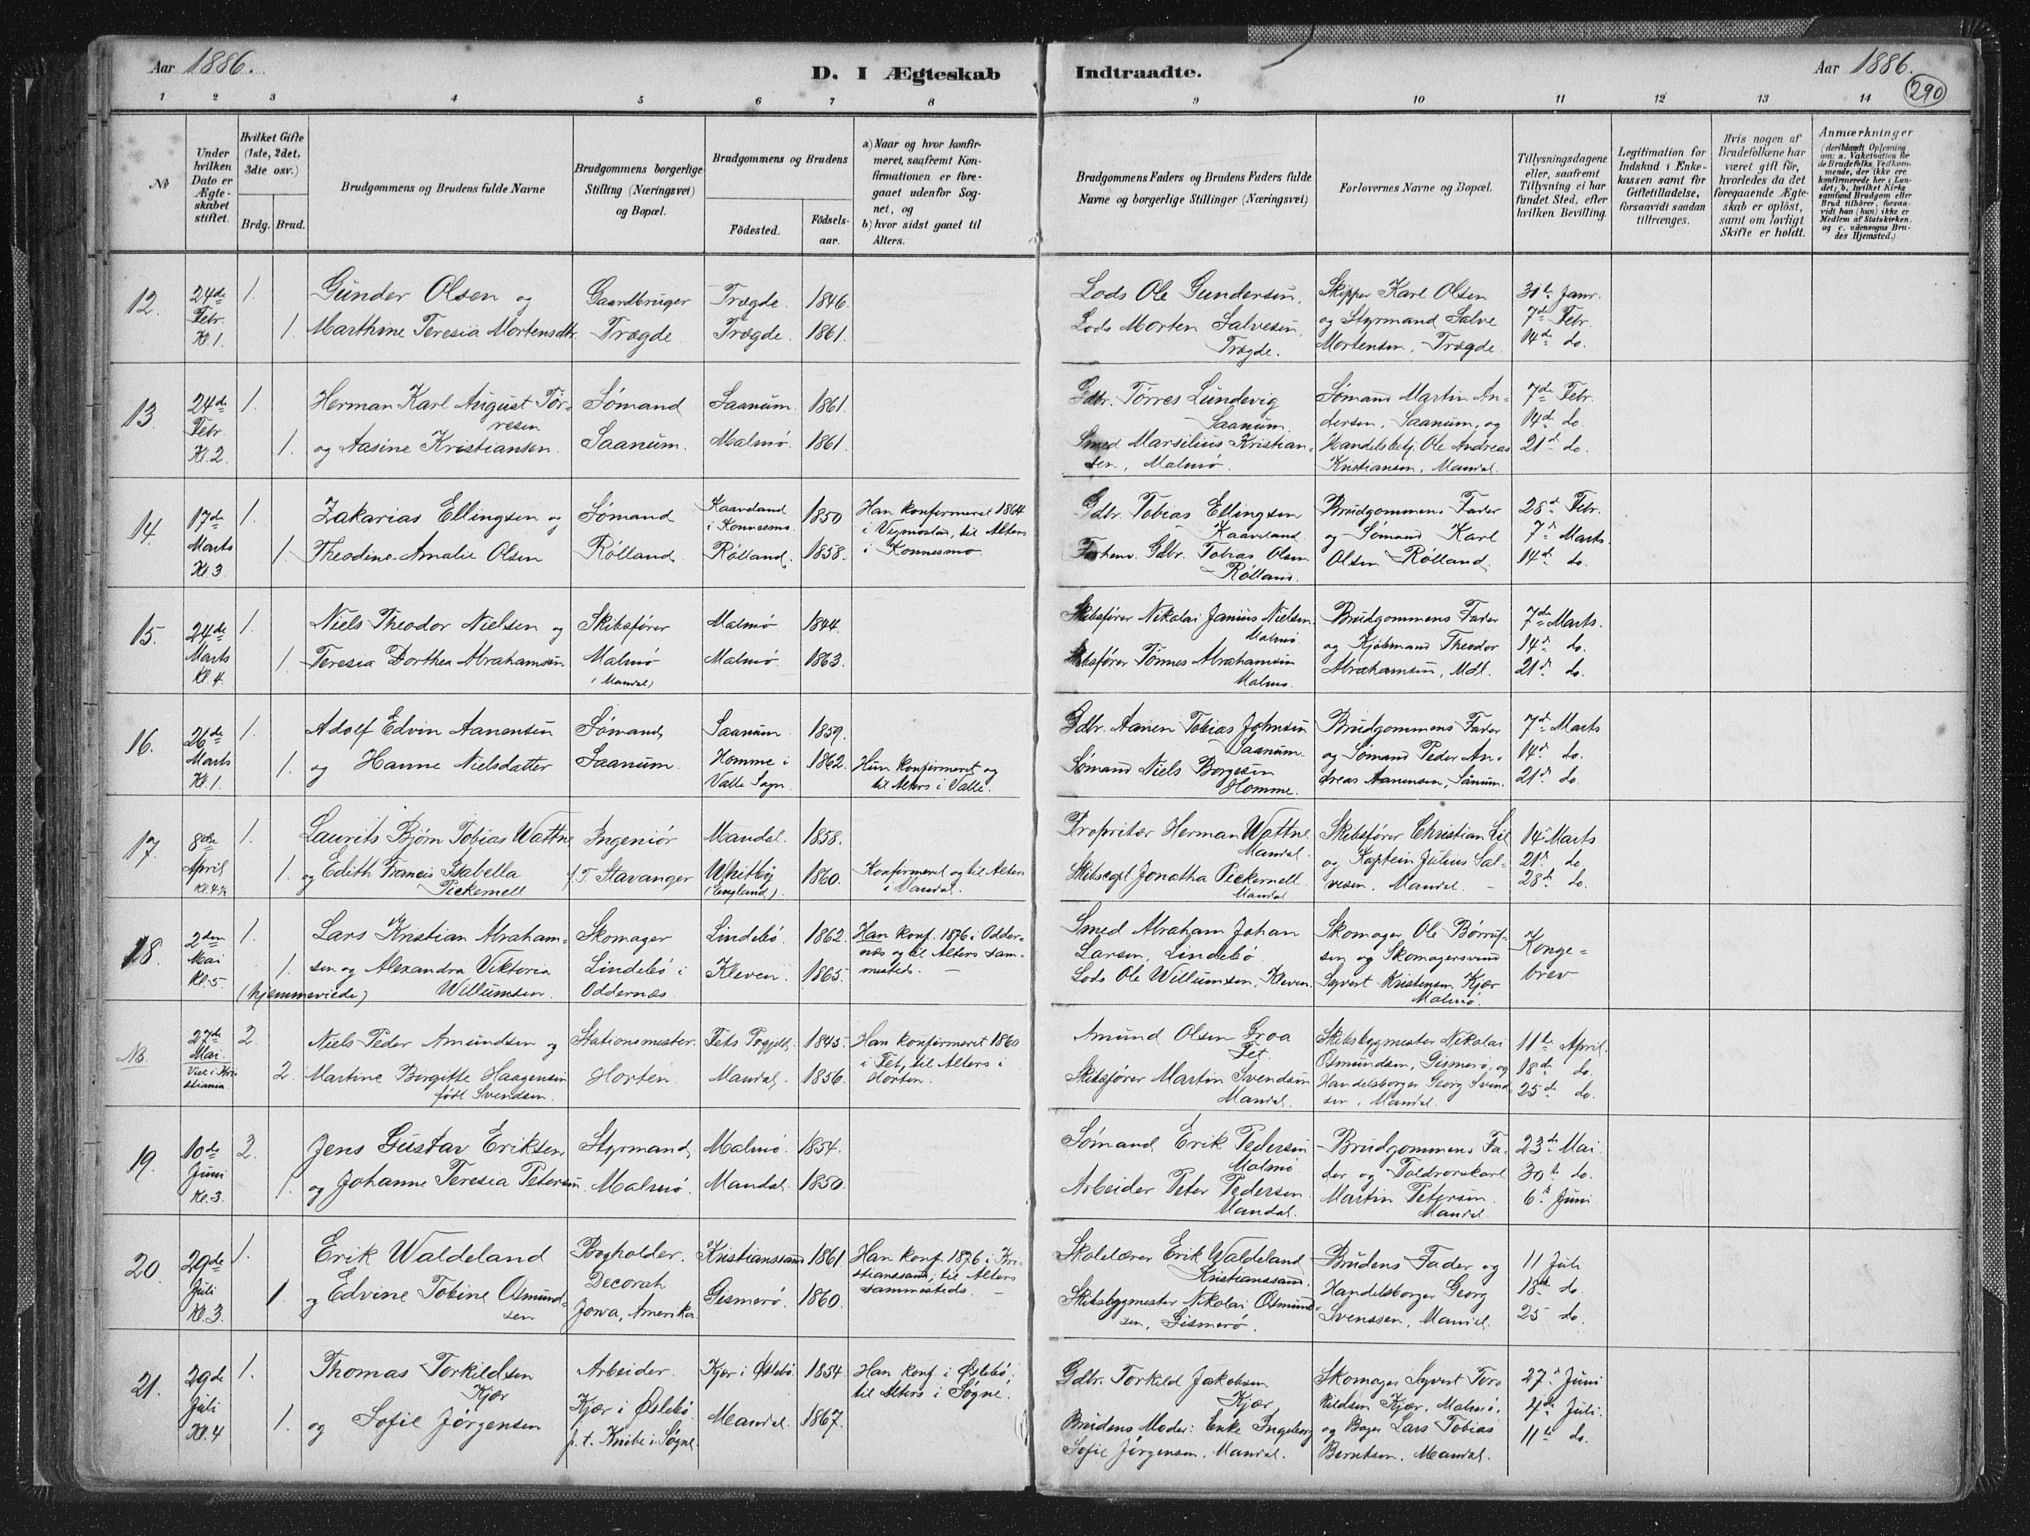 Aar 1886.
D. I Ægteskab
Indtraadte.
Aar 1886.
290
1 2 3 4 5 6 7 8 9 10 11 12 13 14
№
Under hvilken Dato er Ægteskabet stiftet.
Hvilket Gifte (1ste, 2det, 3die osv.)
Brdg. Brud.
Brudgommens og Brudens fulde Navne
Brudgommens borgerlige Stilling (Næringsvei) og Bopæl.
Brudgommens og Brudens
Födested.
Födsels-aar.
a) Naar og hvor konfirmeret, saafremt Konfirmationen er foregaaet udenfor Sognet, og
b) hvor sidst gaaet til Alters.
Brudgommens Faders og Brudens Faders fulde Navne og borgerlige Stillinger (Næringsvei)
Forlovernes Navne og Bopæl.
Tillysningsdagene eller, saafremt Tillysning ei har fundet Sted, efter hvilken Bevilling.
Legitimation for Indskud i Enkekassen samt for Giftetilladelse, forsaavidt saadan tiltrænges.
Hvis nogen af Brudefolkene har været gift för, hvorledes da det foregaaende Ægteskab er oplöst, samt om lovligt Skifte er holdt.
Anmærkninger
(deriblandt Oplysning om: a. Vakcination for de Brudefolks Vedkommende, der ikke ere konfirmerede her i Landet; b. hvilket Kirkesamfund Brudgom eller Brud tilhörer, forsaavidt han (hun) ikke er Medlem af Statskirken, og c. udensogns Brudes Hjemsted.)
12. 24de Febr. Kl. 1. 1. 1.
Gunder Olsen og
Marthine Teresia Mortensdtr.
Gaardbruger
Trægde.
Trægde. 1846.
Trægde. 1861.
Lods Ole Gundersen,
Lods Morten Salvesen,
Trægde.
Skipper Karl Olsen
og Styrmand Salve
Mortensen, Trægde.
31te Janr.
7de Febr.
14de do.
13. 24de Febr. Kl. 2. 1. 1.
Herman Karl August Tør-
resen
og Aasine Kristiansen.
Sømand
Saanum.
Saanum. 1861.
Malmø. 1861.
Gdbr. Tørres Lundevig
Saanum.
Smed Marsilius Kristian-
sen, Malmø.
Sømand Martin An-
dersen, Saanum, og
Handelsbetj. Ole Andreas
Kristiansen, Mandal.
7de Febr.
14d do.
21d do.
14. 17de Marts Kl. 3 1. 1.
Zakarias Ellingsen og
Theodine Amalie Olsen
Sømand
Rølland.
Kaaveland
i Konnesmo. 1850
Rølland. 1858.
Han konfirmeret 1864
i Vigmostad, til Alters
i Konnesmo.
Gdbr. Tobias Ellingsen
Kaaveland.
Forhenv. Gdbr. Tobias Olsen
Rølland.
Brudgommens Fader
og Sømand Karl
Olsen Rølland.
28d Febr.
7d Marts.
14d do.
15. 24de Marts Kl. 4. 1. 1.
Niels Theodor Nielsen og
Teresia Dorthea Abrahamsen
Skibsfører
Malmø
(Mandal)
Malmø 1844.
Malmø. 1863.
Skibsfører Nikolai Janius Nielsen
Malmø.
Skibsfører Tønnes Abrahamsen
Malmø.
Brudgommens Fader
og Kjøbmand Theodor
Abrahamsen, Mdl.
7de Marts.
14d do.
21d do.
16. 26de Marts Kl. 1. 1. 1.
Adolf Edvin Aanensen
og Hanne Nielsdatter
Sømand
Saanum.
Saanum. 1859.
Homme i
Valle Sogn 1862.
Hun konfirmeret og
til Alters i Valle.
Gdbr. Aanen Tobias Johnsen
Saanum.
Sømand Niels Borgesen
Homme.
Brudgommens Fader
og Sømand Peder An-
dreas Aanensen, Sånum.
7d Marts
14d do.
21d do.
17. 8de April Kl. 4½ 1. 1.
Laurits Bjørn Tobias Wattne
og Edith Francis Isabella
Pickernell
Ingeniør
p. T. Stavanger
Mandal. 1858.
Whitby
(England). 1860.
Konfirmeret og til Alters
i Mandal.
Propritær Herman Wattne
Mandal.
Skibscpt. Jonatha Pickernell
Mandal
Skibsfører Christian Lil
og Kaptein Julius Sal-
vesen, Mandal.
14d Marts
21d do.
28d do.
18. 2den Mai Kl. 5 1. 1.
Lars Kristian Abraham-
sen og Alexandra Viktoria
(hjemmeviede) Willumsen.
Skomager
Lindebø i
Oddernæs.
Lindebø. 1862.
Kleven. 1865.
Han konf. 1876 i Odder-
næs og til Alters sam-
mesteds.
Smed Abraham Johan
Larsen, Lindebø
Lods Ole Willumsen, Kleven.
Skomager Ole Børruf-
sen og Skomagersvend
Syvert Kristensen Kjær
Malmø.
Konge-
brev
NB. 27de Mai. Viet i Kri-
stiania 2 2.
Niels Peder Amundsen og
Martine Birgitte Haagensen
født Svendsen.
Stationsmester
Horten.
Fets Prgjeld. 1845.
Mandal. 1856.
Han konfirmeret 1860
i Fet, til Alters i
Horten.
Amund Olsen Groa
Fet.
Skibsfører Martin Svendsen
Mandal.
Skibsbygmester Nikolai
Osmundsen, Gismerø, og
Handelsborger Georg Svend-
sen, Mandal.
11te April.
18de do.
25de do.
19. 10de Juni Kl. 3. 2. 1.
Jens Gustav Eriksen
og Johanne Teresia Petersen
Styrmand
Malmø.
Malmø. 1854.
Mandal. 1850.
Sømand Erik Pedersen
Malmø.
Arbeider Peter Pedersen
Mandal.
Brudgommens Fa-
der og Toldrorskarl
Martin Petersen.
Mandal.
23de Mai.
30te do.
6d Juni
20. 29de Juli Kl. 3. 1. 1
Erik Waldeland
og Edvine Tobine Osmund-
sen
Bogholder.
Decorah
Jowa, Amerika.
Kristianssand 1861
Gismerø. 1860.
Han konf. 1876 i Kri-
stianssand, til Alters
sammesteds.
Skolelærer Erik Waldeland
Kristianssand.
Skibsbygmester Nikolai Osmund-
sen, Gismerø.
Brudens Fader og
Handelsborger Georg
Svenssen, Mandal.
11 Juli
18de do.
25 do.
21. 29de Juli Kl. 4 1. 1.
Thomas Torkildsen
Kjær
og Sofie Jørgensen
Arbeider.
Kjær i Øslebø.
p. t. Knibe i Søgne.
Kjær i Øslebø 1854.
Mandal. 1867.
Han konf. i Øslebø,
til Alters i Søgne.
Gdbr. Torkild Jakobsen
Kjær.
Brudens Moder: Enke Ingeborg
Sofie Jørgensen, Mandal.
Skomager Syvert Tor-
kildsen Kjær, Malmø,
og Bager Lars Tobias
Berntsen, Mandal.
27d Juni
4de Juli.
11te do.